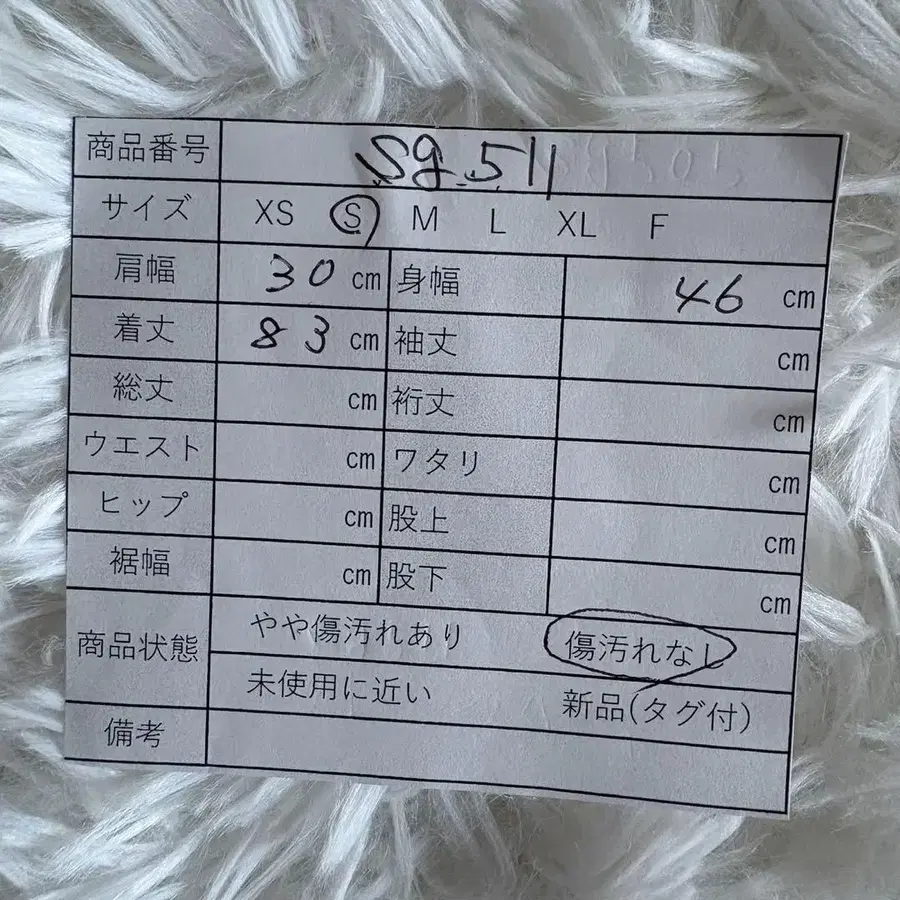 商品番号 sg.511
サイズ XS S M L XL F
肩幅 30 cm 身幅 46 cm
着丈 83 cm 袖丈 cm
総丈 cm 裄丈 cm
ウエスト cm ワタリ cm
ヒップ cm 股上 cm
裾幅 cm 股下 cm
商品状態 やや傷汚れあり 傷汚れなし
未使用に近い 新品(タグ付)
備考